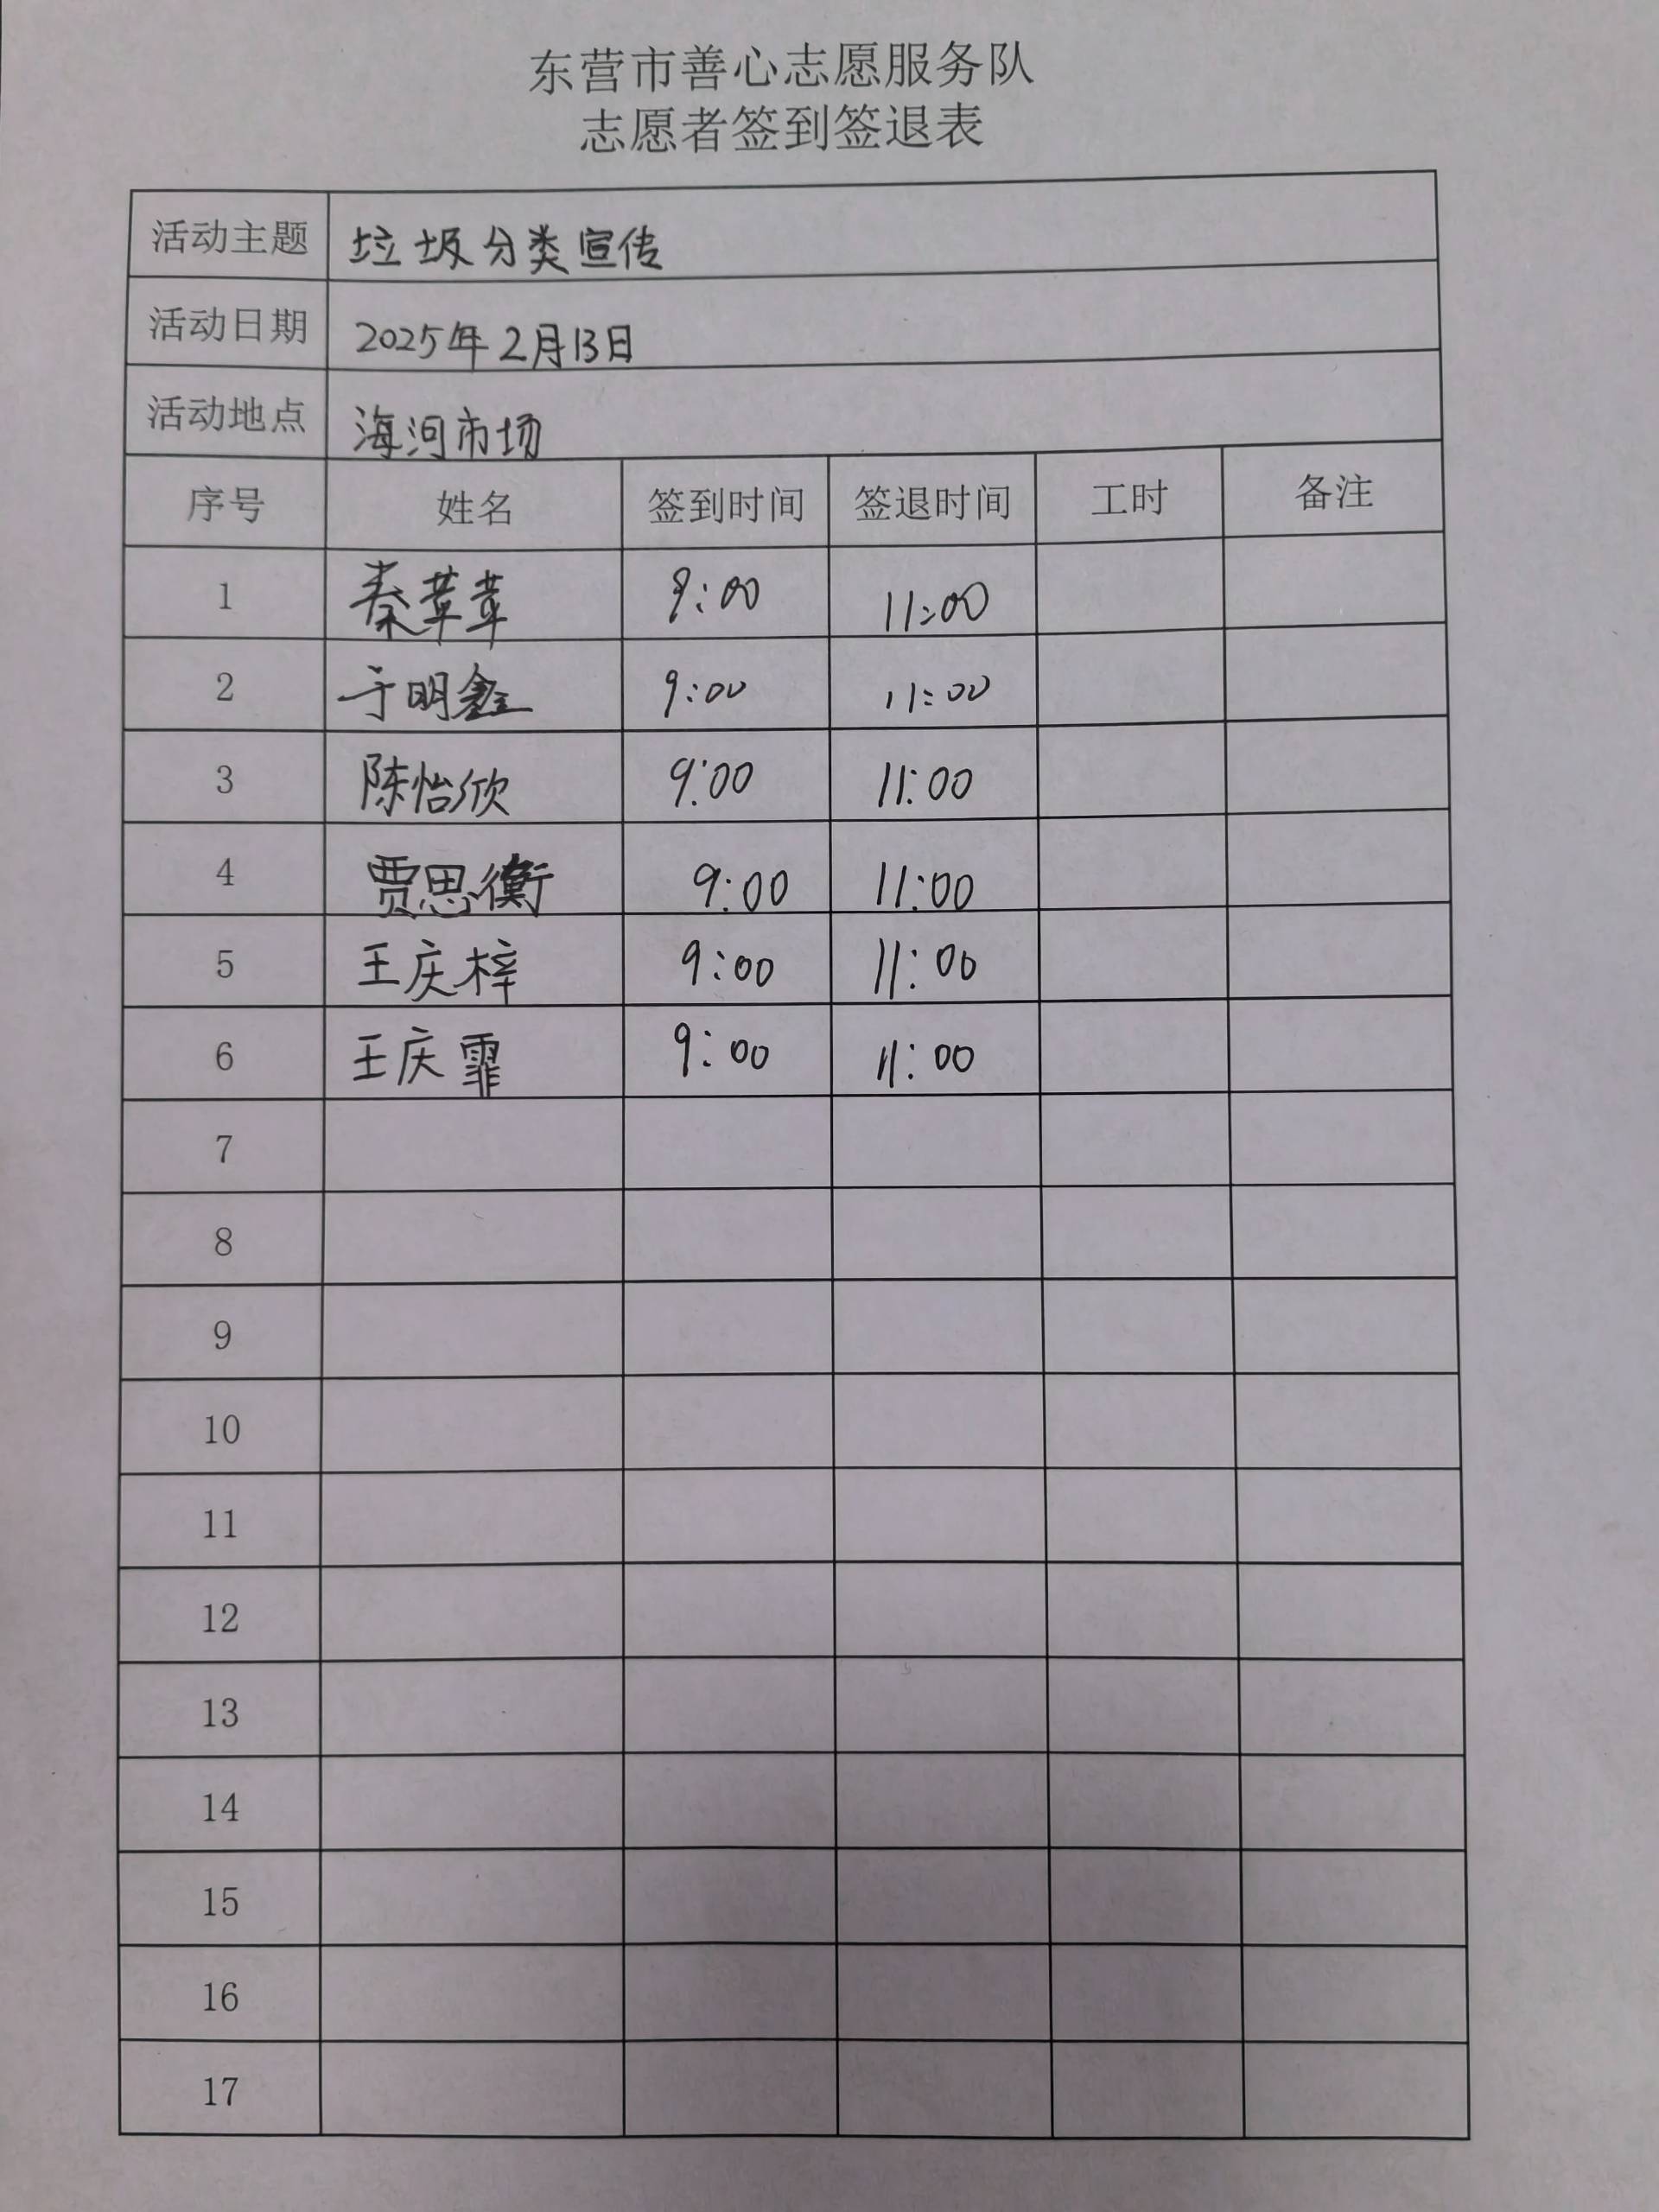 东营市善心志愿服务队
志愿者签到签退表
活动主题 垃圾分类宣传
活动日期 2025年2月13日
活动地点 海河市场
序号 姓名 签到时间 签退时间 工时 备注
1 秦 9:00 11:00
2 于明鑫 9:00 11:00
3 陈怡欣 9:00 11:00
4 贾思衡 9:00 11:00
5 王庆梓 9:00 11:00
6 王庆霏 9:00 11:00
7
8
9
10
11
12
13
14
15
16
17